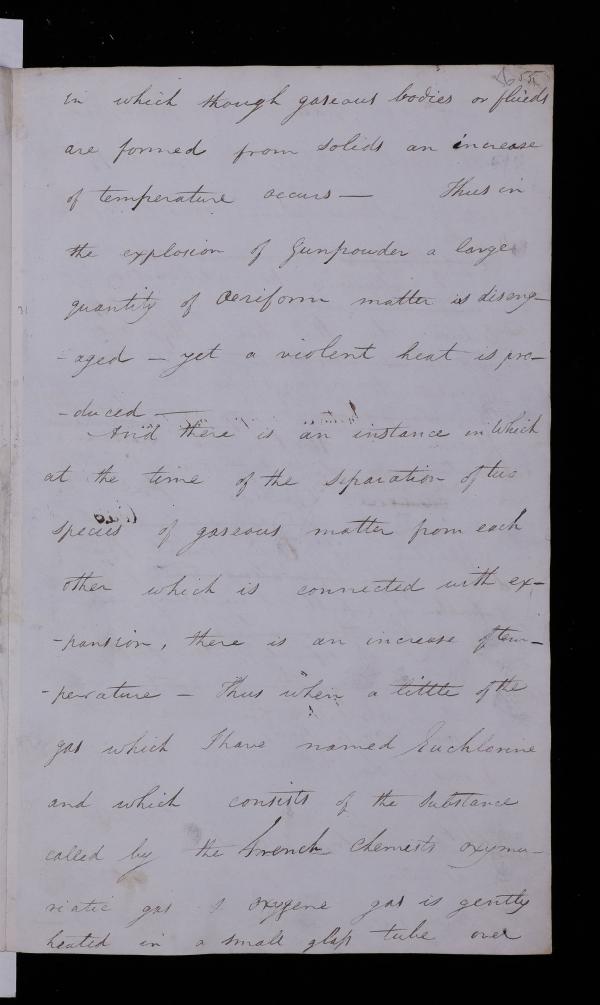 55
in which though gaseous bodies or fluids
are formed from solids an increase
of temperature occurs — Thus in
the explosion of Gunpowder a large
quantity of aeriform matter is diseng-
-aged — yet a violent heat is pro-
-duced —
And there is an instance in which
at the time of the separation of two
species of gaseous matter from each
other which is connected with ex-
-pansion, there is an increase of tem-
-perature — Thus when a little of the
gas which I have named Euchlorine
and which consists of the substance
called by the French Chemists oxymu-
riatic gas & oxygene gas is gently
heated in a small glass tube over